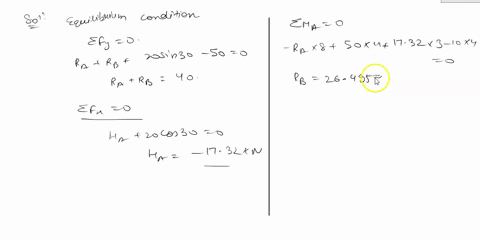 Solⁿ: Equilibrium condition
ΣFy = 0.
RA + RB + 20sin30 - 50 = 0
RA + RB = 40.
ΣFx = 0
HA + 20cos30 = 0
HA = -17.32 kN
ΣMA = 0
-RA × 8 + 50 × 4 + 17.32 × 3 - 10 × 4
= 0
RB = 26.495